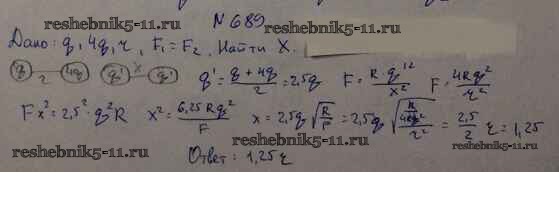 № 689
reshebnik5-11.ru reshebnik5-11.ru
Дано: q, 4q, r, F₁ = F₂. Найти X.
q r 4q q' x q' q' = (q + 4q)/2 = 2,5q F = Rq'²/x² F = 4Rq²/r²
Fx² = 2,5² · q²R x² = 6,25Rq²/F x = 2,5q√(R/F) = 2,5q√(R/(4Rq²/r²)) = 2,5/2 r = 1,25
reshebnik5-11.ru reshebnik5-11.ru
Ответ: 1,25 r